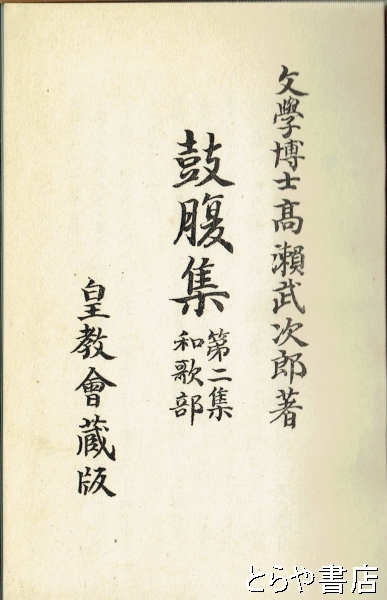 文學博士髙瀨武次郎著
鼓腹集
第二集
和歌部
皇教會蔵版
とらや書店